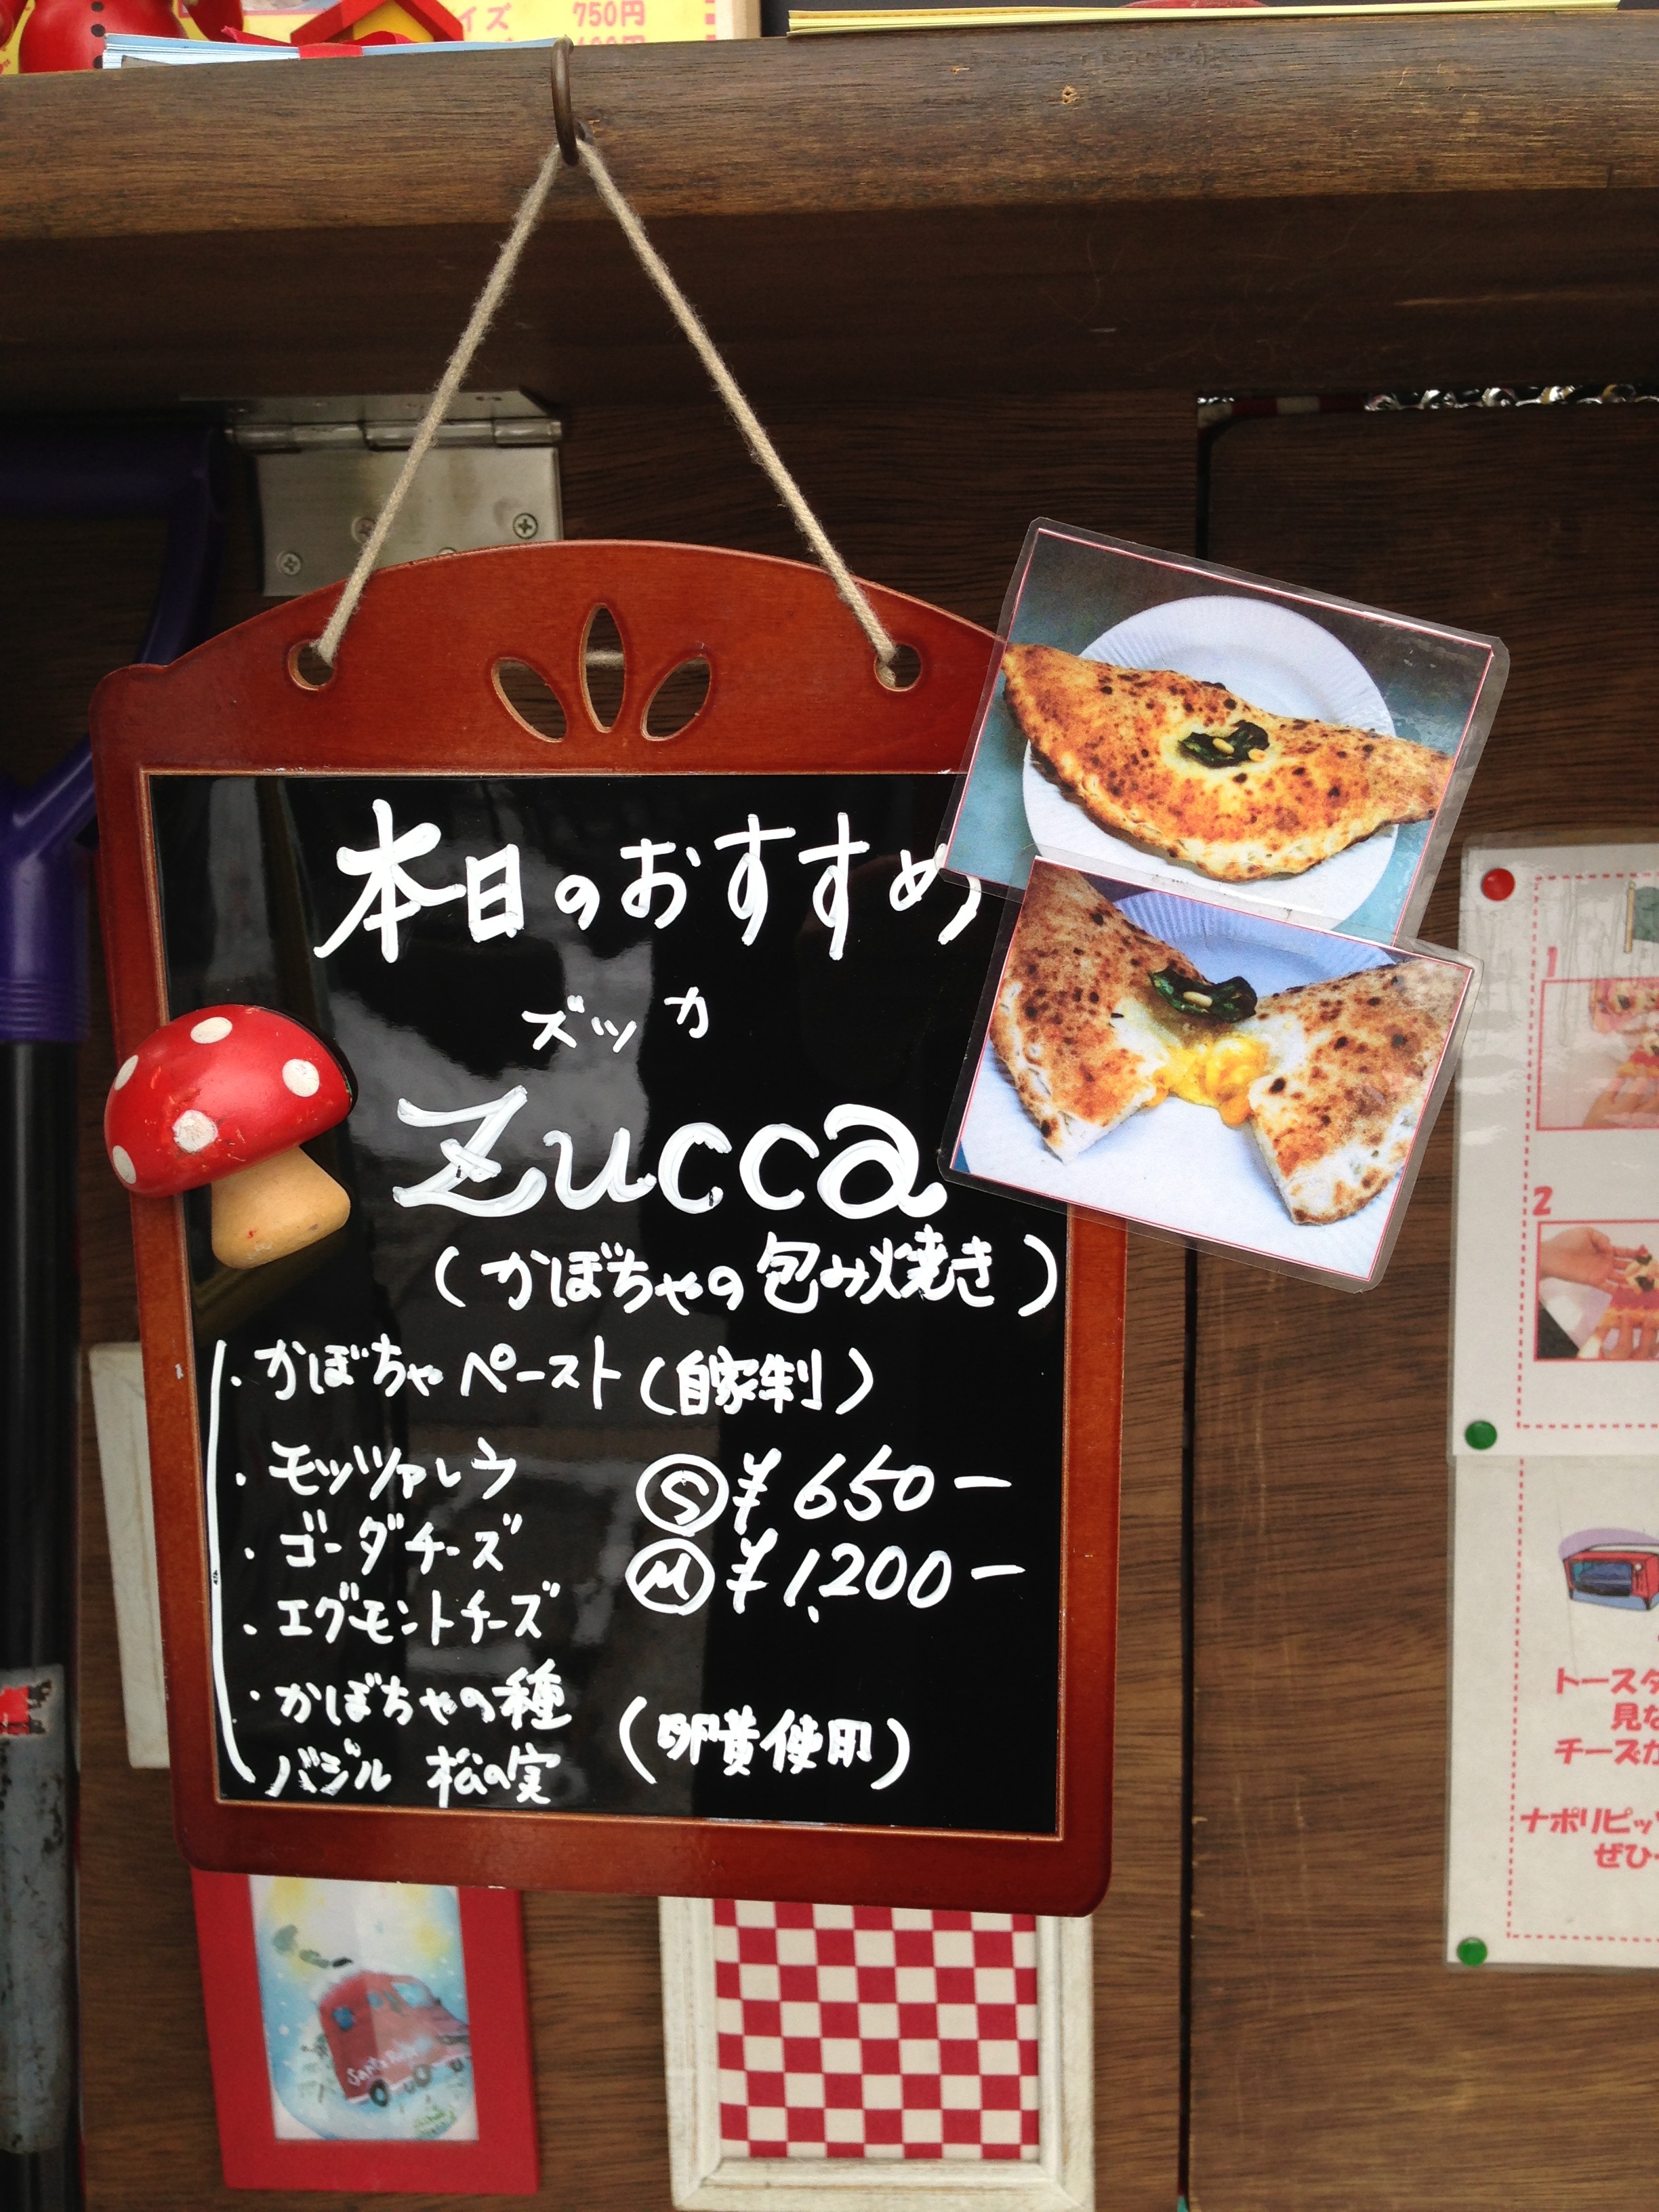 イズ 750円
本日のおすすめ
ズッカ
Zucca
(かぼちゃの包み焼き)
・かぼちゃペースト(自家制)
・モッツァレラ
Ⓢ ¥650-
・ゴーダチーズ
Ⓜ ¥1,200-
・エグモントチーズ
・かぼちゃの種
バジル 松の実
(卵黄使用)
1
2
トースタ
見な
チーズが
ナポリピッツ
ぜひ